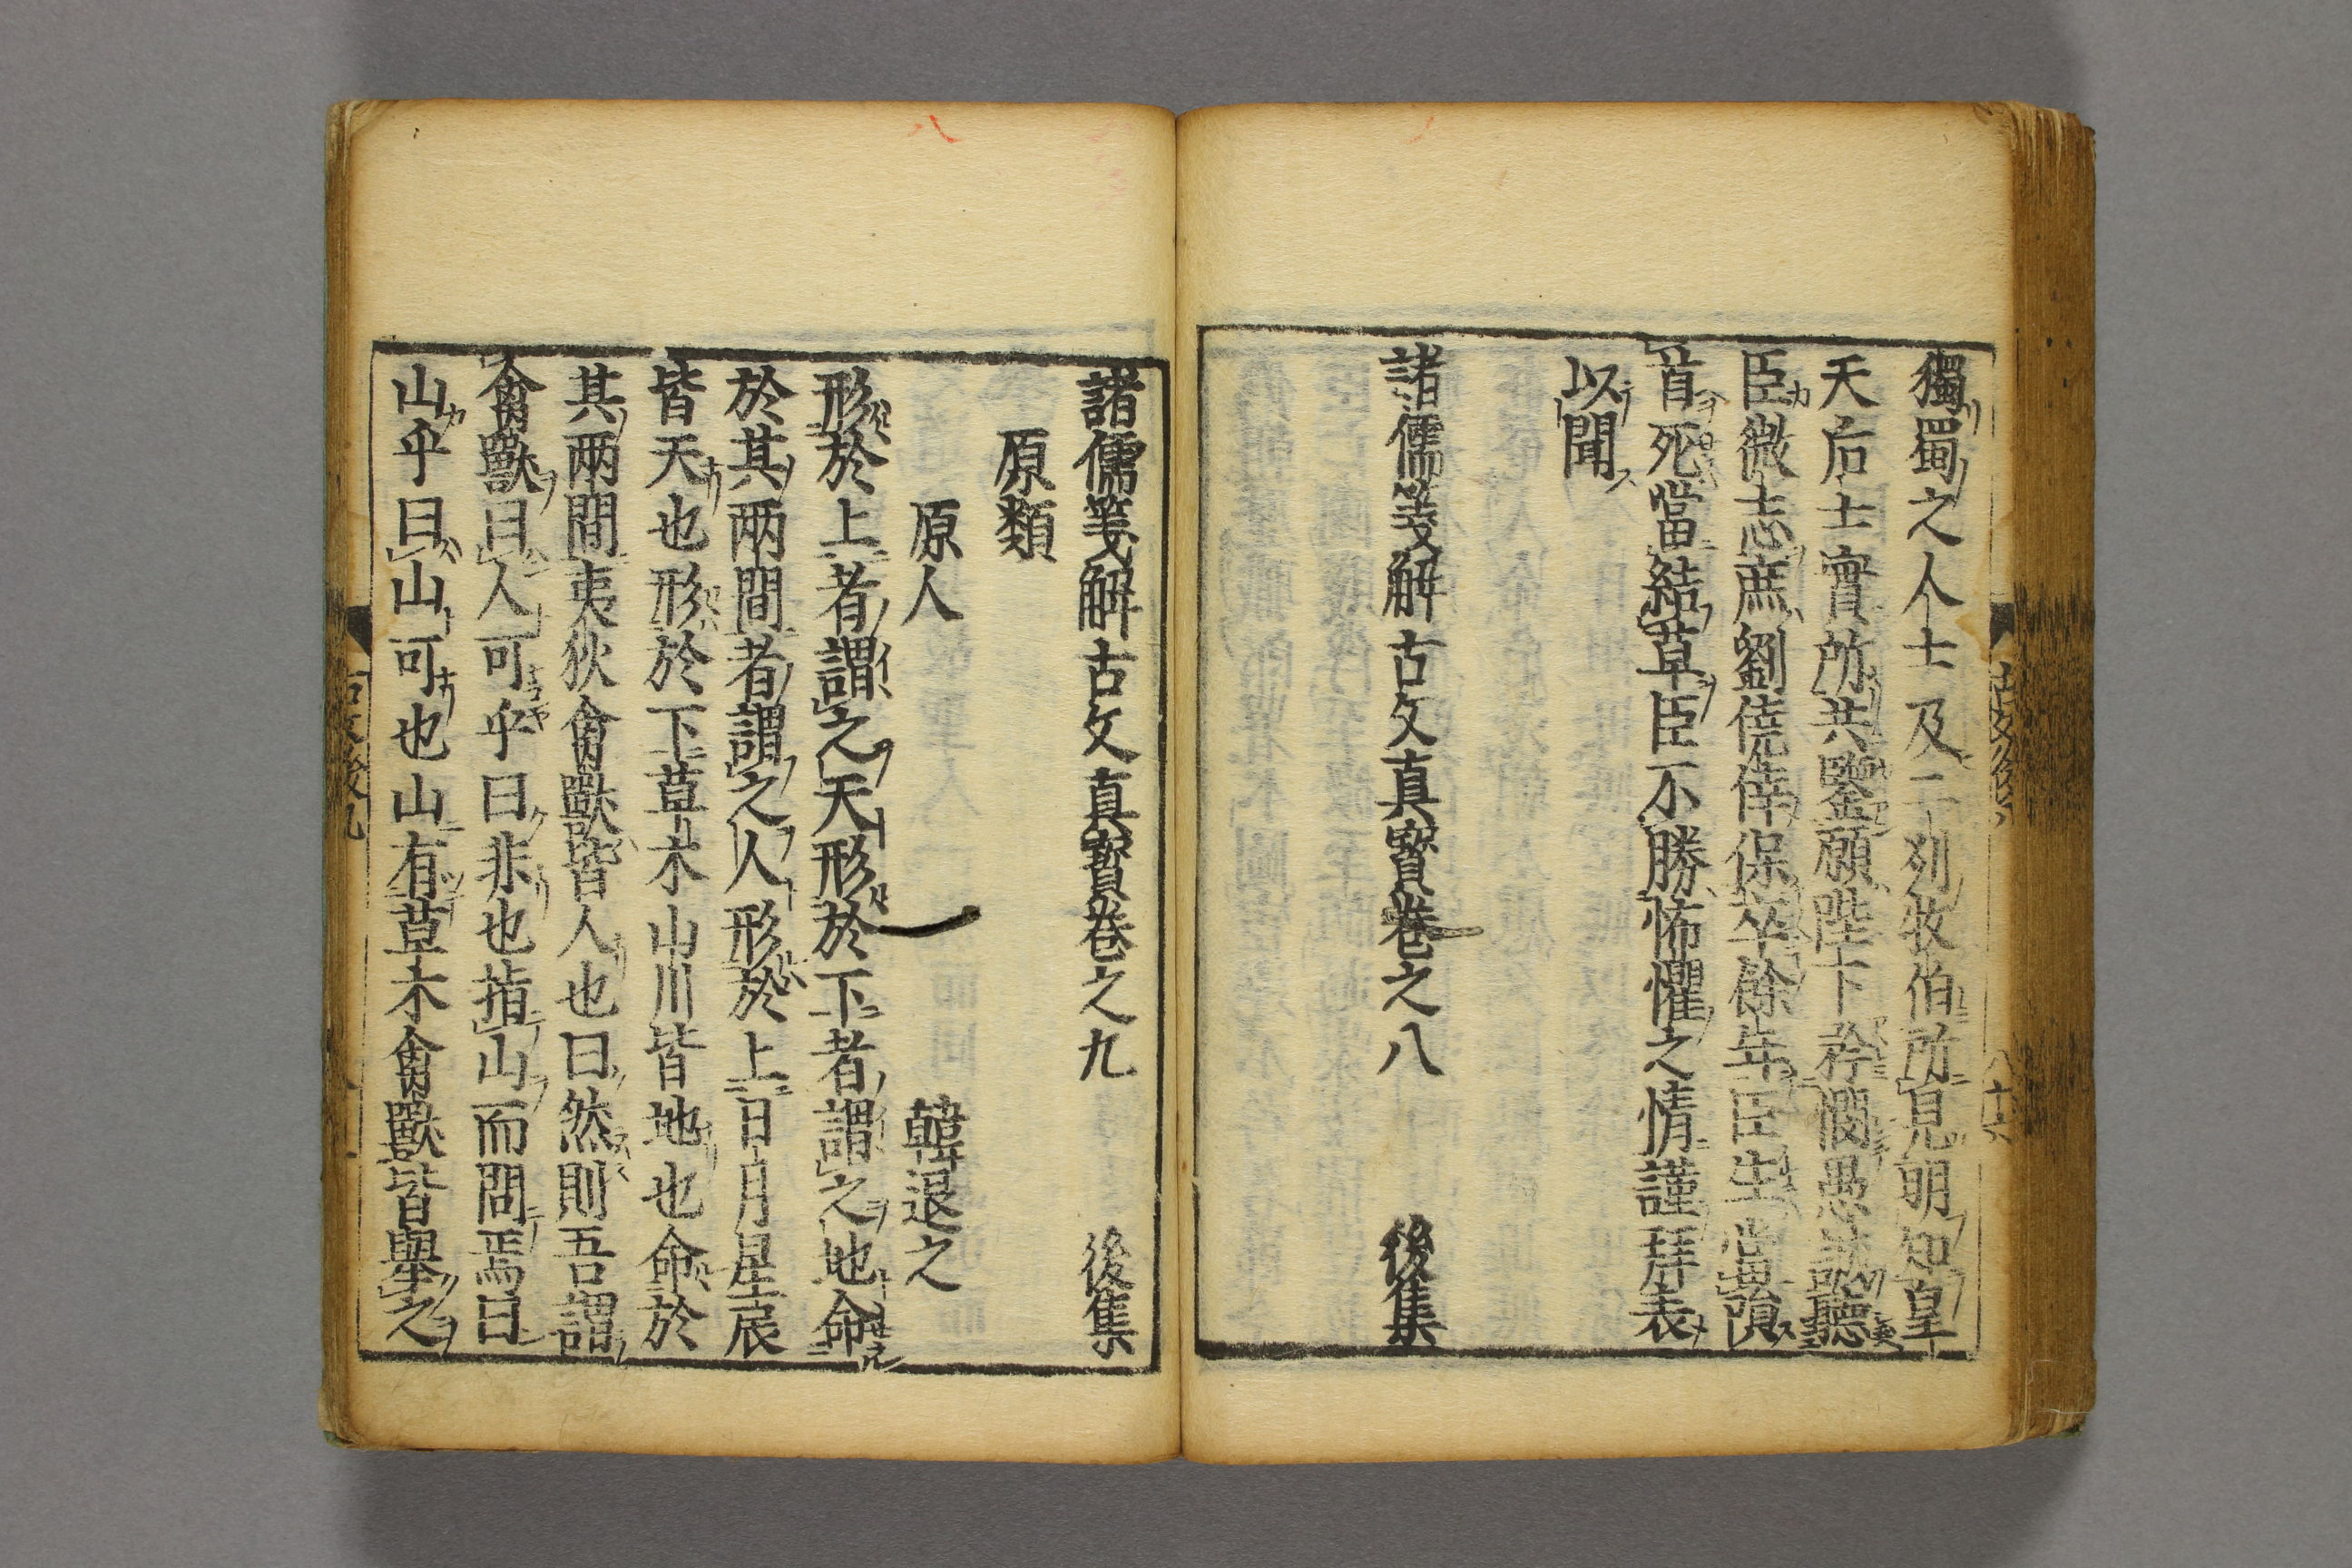 獨蜀之人士及二列牧伯所見明知皇
天后土實所共鑒願陛下矜憫愚誠聽
臣微志庶劉僥倖保卒餘年臣生當隕
首死當結草臣不勝怖懼之情謹拜表
以聞
諸儒箋解古文真寳卷之八 後集
諸儒箋解古文真寳卷之九 後集
原類
原人 韓退之
形於上者謂之天形於下者謂之地命
於其兩間者謂之人形於上日月星辰
皆天也形於下草木山川皆地也命於
其兩間夷狄禽獸皆人也曰然則吾謂
禽獸曰人可乎曰非也指山而問焉曰
山乎曰山可也山有草木禽獸皆舉之
古文後九